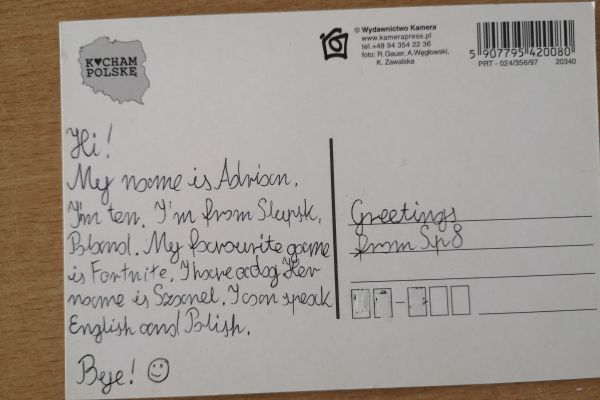 K♥CHAM
POLSKĘ
© Wydawnictwo Kamera
www.kamerapress.pl
tel.+48 94 354 22 36
foto: R.Gauer, A.Węgłowski,
K. Zawalska
5 907795 420080
PRT - 024/356/97 20340
Hi!
My name is Adrian.
I'm ten. I'm from Słupsk,
Poland. My favourite game
is Fortnite. I have a dog. Her
name is Szanel. I can speak
English and Polish.
Bye! ☺
Greetings
from Sp8